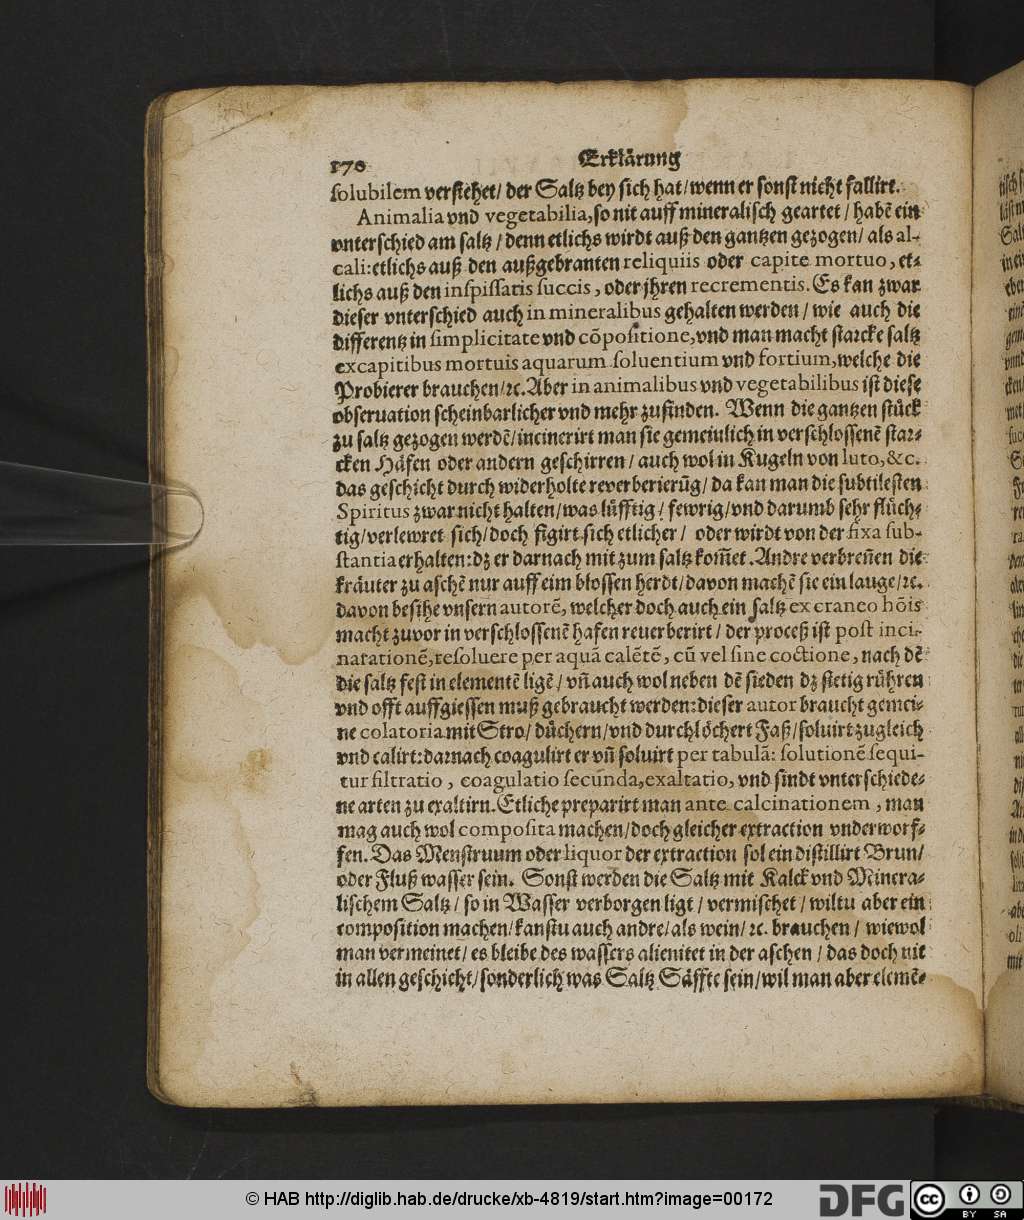 170 Erklärung
solubilem verstehet/ der Saltz bey sich hat/ wenn er sonst nicht fallirt.
Animalia vnd vegetabilia, so nit auff mineralisch geartet / habẽ ein
vnterschied am saltz / denn etlichs wirdt auß den gantzen gezogen/ als al-
cali: etlichs auß den außgebranten reliquiis oder capite mortuo, et-
lichs auß den inspissatis succis, oder jhren recrementis. Es kan zwar
dieser vnterschied auch in mineralibus gehalten werden / wie auch die
differentz in simplicitate vnd cõpositione, vnd man macht starcke saltz
ex capitibus mortuis aquarum soluentium vnd fortium, welche die
Probierer brauchen/ ꝛc. Aber in animalibus vnd vegetabilibus ist diese
obseruation scheinbarlicher vnd mehr zufinden. Wenn die gantzen stück
zu saltz gezogen werdẽ/ incinerirt man sie gemeinlich in verschlossenẽ star-
cken Häfen oder andern geschirren / auch wol in Kugeln von luto, &c.
das geschicht durch widerholte reverberierũg/ da kan man die subtilesten
Spiritus zwar nicht halten/ was lüfftig / fewrig/ vnd darumb sehr flüch-
tig/ verlewret sich/ doch figirt sich etlicher / oder wirdt von der fixa sub-
stantia erhalten: dz er darnach mit zum saltz kom̃et. Andre verbreñen die
kräuter zu aschẽ nur auff eim blossen herdt/ davon machẽ sie ein lauge/ ꝛc.
davon besihe vnsern autorẽ, welcher doch auch ein saltz ex craneo hõis
macht zuvor in verschlossenẽ hafen reuerberirt / der proceß ist post inci-
narationẽ, resoluere per aquã calẽtẽ, cũ vel sine coctione, nach dẽ
die saltz fest in elementẽ ligẽ / vñ auch wol neben dẽ sieden dz stetig rühren
vnd offt auffgiessen muß gebraucht werden: dieser autor braucht gemei-
ne colatoria mit Stro/ düchern/ vnd durchlöchert Faß/ soluirt zugleich
vnd calirt: darnach coagulirt er vñ soluirt per tabulã: solutionẽ sequi-
tur filtratio, coagulatio secunda, exaltatio, vnd sindt vnterschiede-
ne arten zu exaltirn. Etliche preparirt man ante calcinationem, man
mag auch wol composita machen/ doch gleicher extraction vnderworf-
fen. Das Menstruum oder liquor der extraction sol ein distillirt Brun/
oder Fluß wasser sein. Sonst werden die Saltz mit Kalck vnd Minera-
lischem Saltz / so in Wasser verborgen ligt / vermischet / wiltu aber ein
composition machen/ kanstu auch andre/ als wein/ ꝛc. brauchen / wiewol
man vermeinet/ es bleibe des wassers alienitet in der aschen / das doch nit
in allen geschicht/ sonderlich was Saltz Säffte sein/ wil man aber elemẽ-
© HAB http://diglib.hab.de/drucke/xb-4819/start.htm?image=00172
DFG
cc BY SA